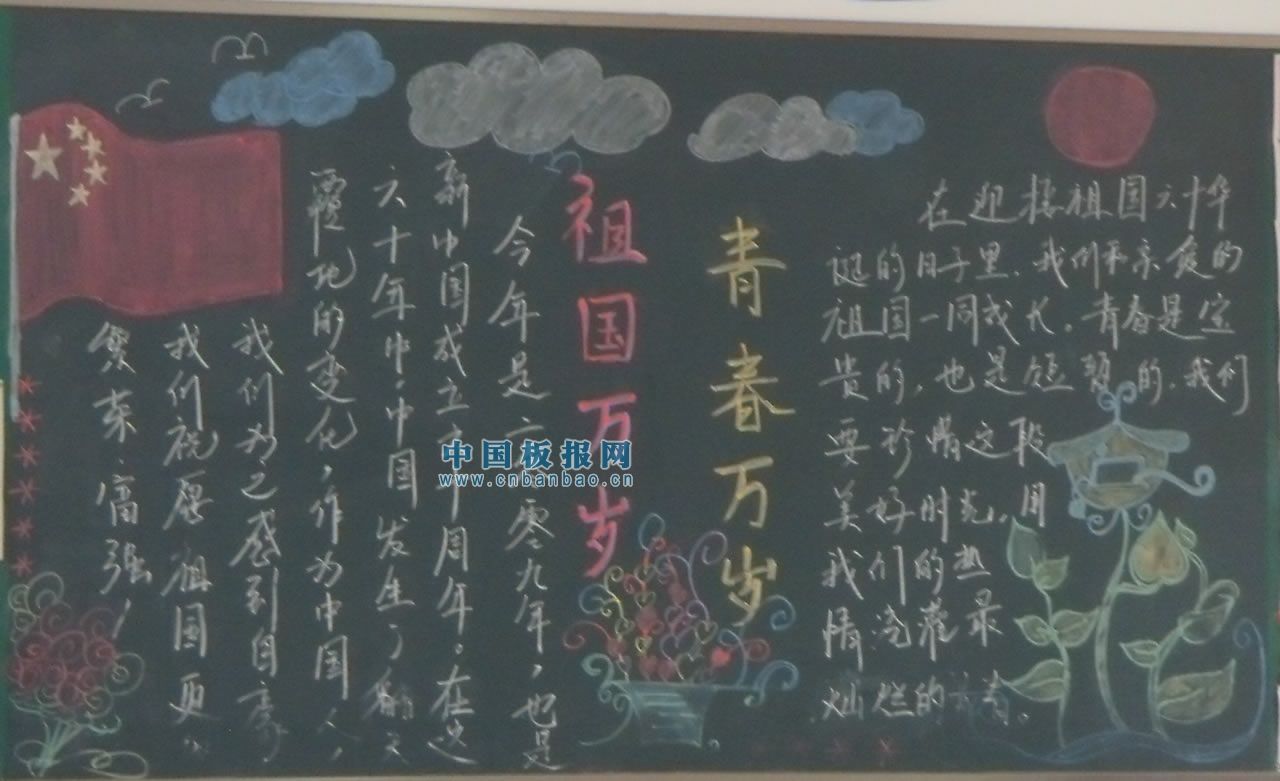 祖国万岁
今年是二零零九年，也是
新中国成立六十周年。在这
六十年中，中国发生了翻天
覆地的变化，作为中国人，
我们为之感到自豪
我们祝愿祖国更加
繁荣富强！
青春万岁
在迎接祖国六十华
诞的日子里，我们和亲爱的
祖国一同成长。青春是宝
贵的，也是短暂的，我们
要珍惜这段
美好时光，用
我们的热
情浇灌最
灿烂的青春。
中国板报网
www.cnbanbao.cn